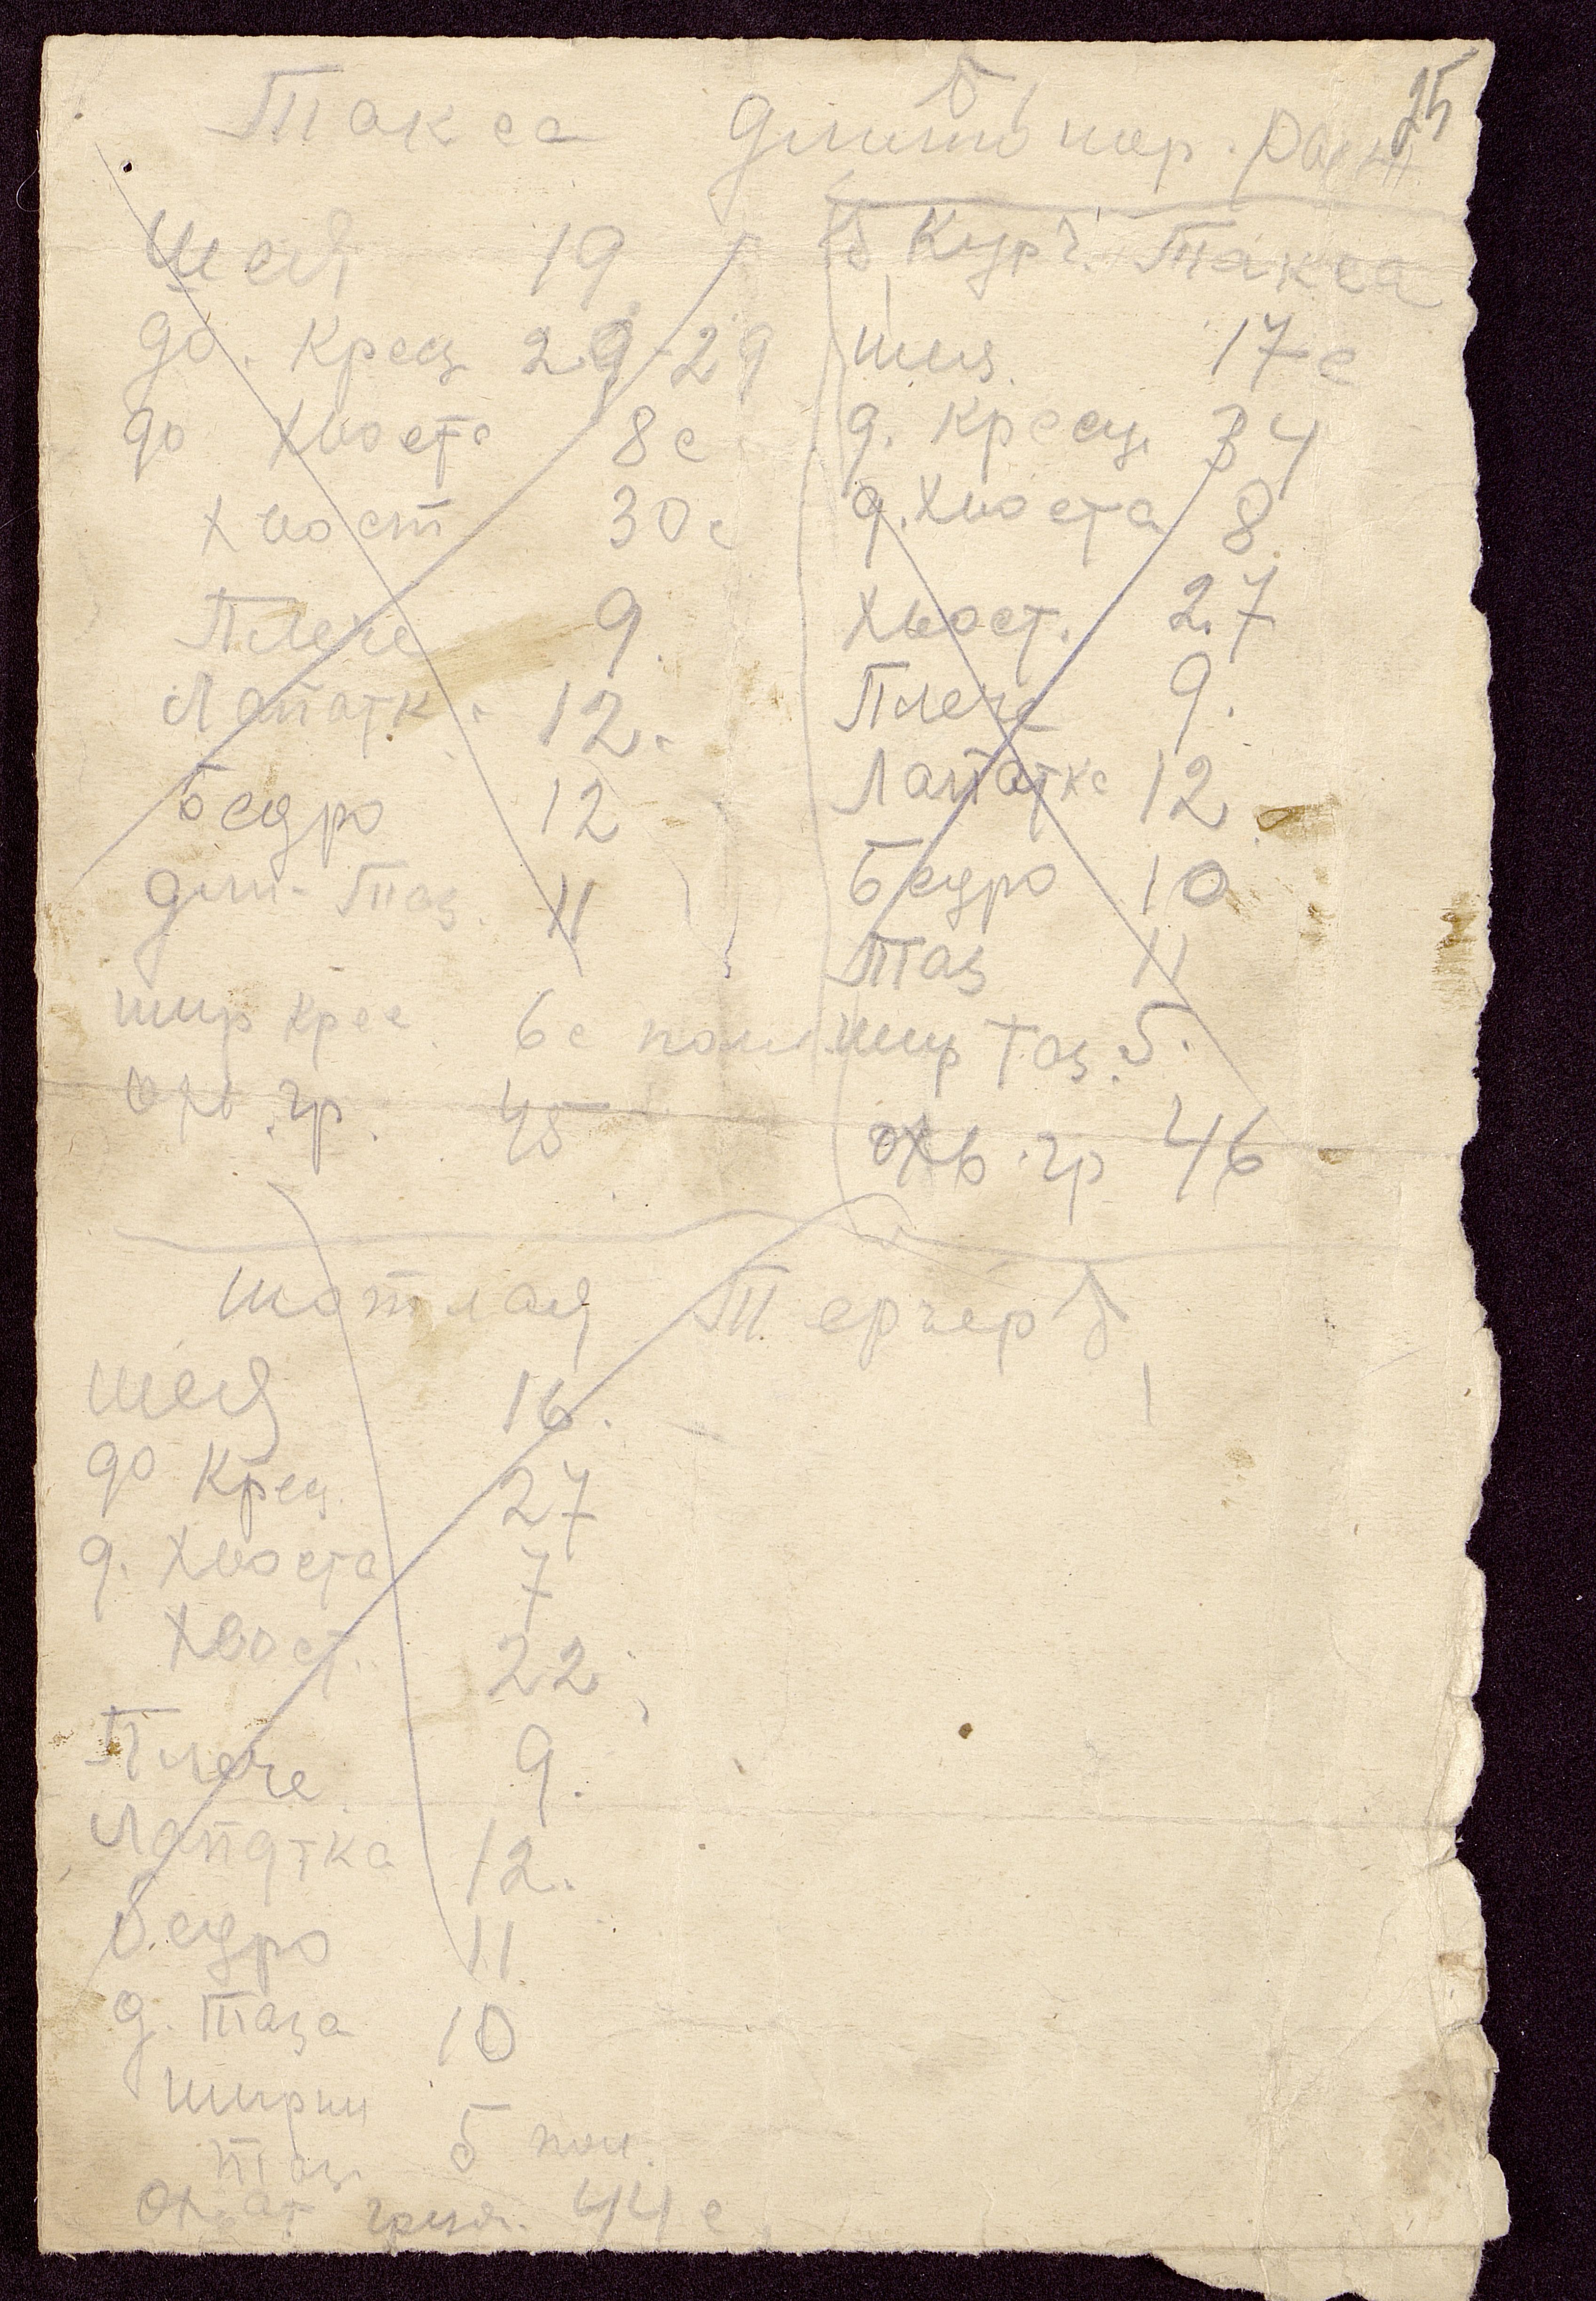 25
Такса
шея 19
до. крец 29-29
до хвоста 8с
хвост 30с
Плече 9.
Лапатк 12.
бедро 12
длин- Таз. 11
шир крес 6с пол
охв. гр. 45
б, Курч. Такса
шия. 17 с
д. кресц 34
д. хвоста 8
хвост. 27
Плече 9.
Лапатке 12
Бедро 10
Таз 11
шир Таз. 5.
охв. гр 46
шотлая Терьер б,
шея 16.
до крец. 27
д. хвоста 7
хвост. 22
Плече 9.
Лапатка 12.
бедро 11
д. Таза 10
ширин
Таз 5 пол.
Охват груди. 44 с